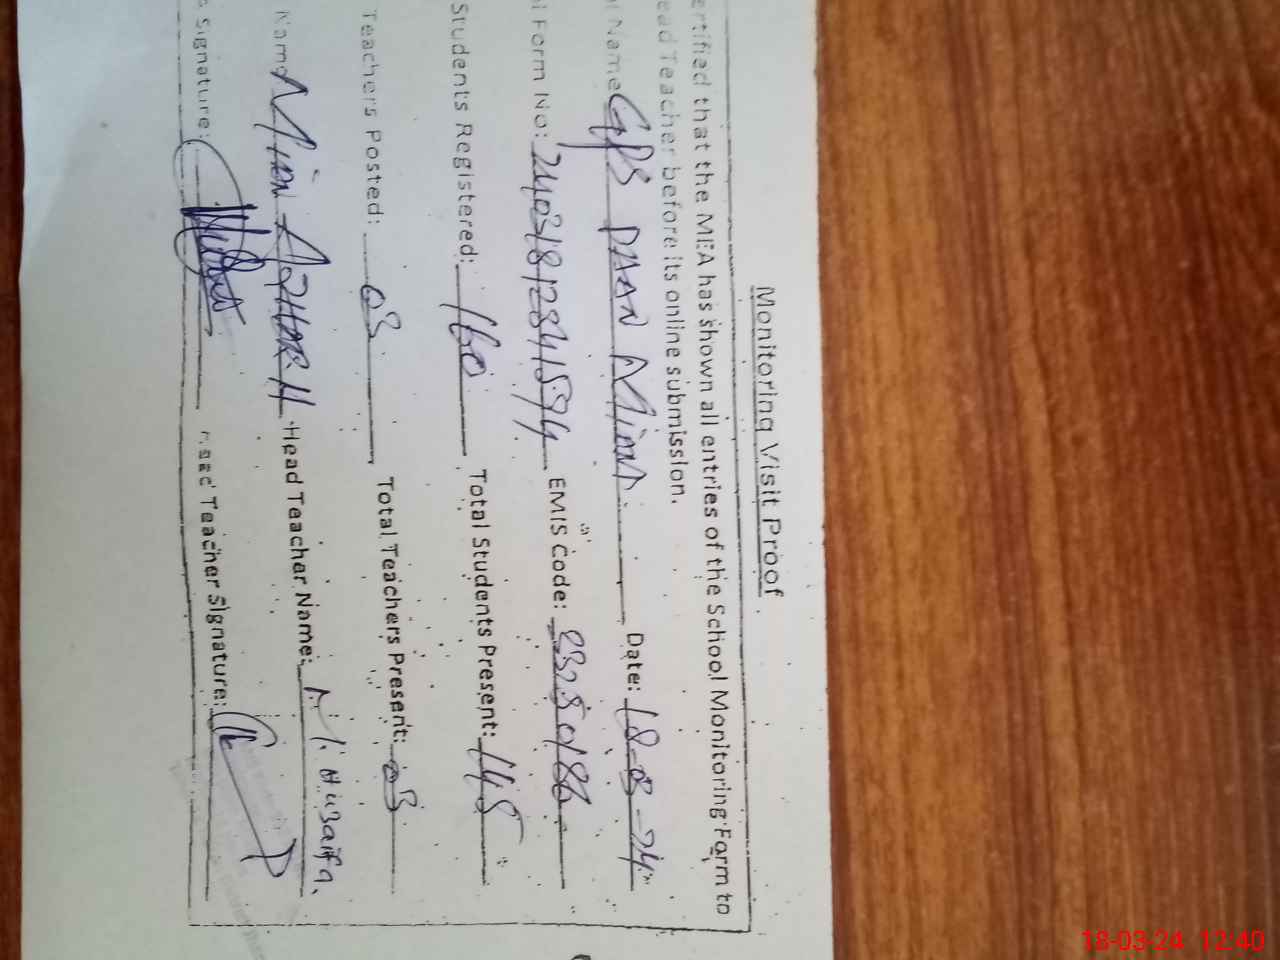 Monitoring Visit Proof
ertified that the MEA has shown all entries of the School Monitoring Form to
ead Teacher before its online submission.
l Name GPS DAAN Mian. Date: 18-03-24
l Form No: 240318128341594 EMIS Code: 23230186
Students Registered: 160 Total Students Present: 145
Teachers Posted: 03 Total Teachers Present: 03
Name Mian AZHAR H Head Teacher Name: M. Huzaifa.
Signature: Head Teacher Signature:
18-03-24 12:40